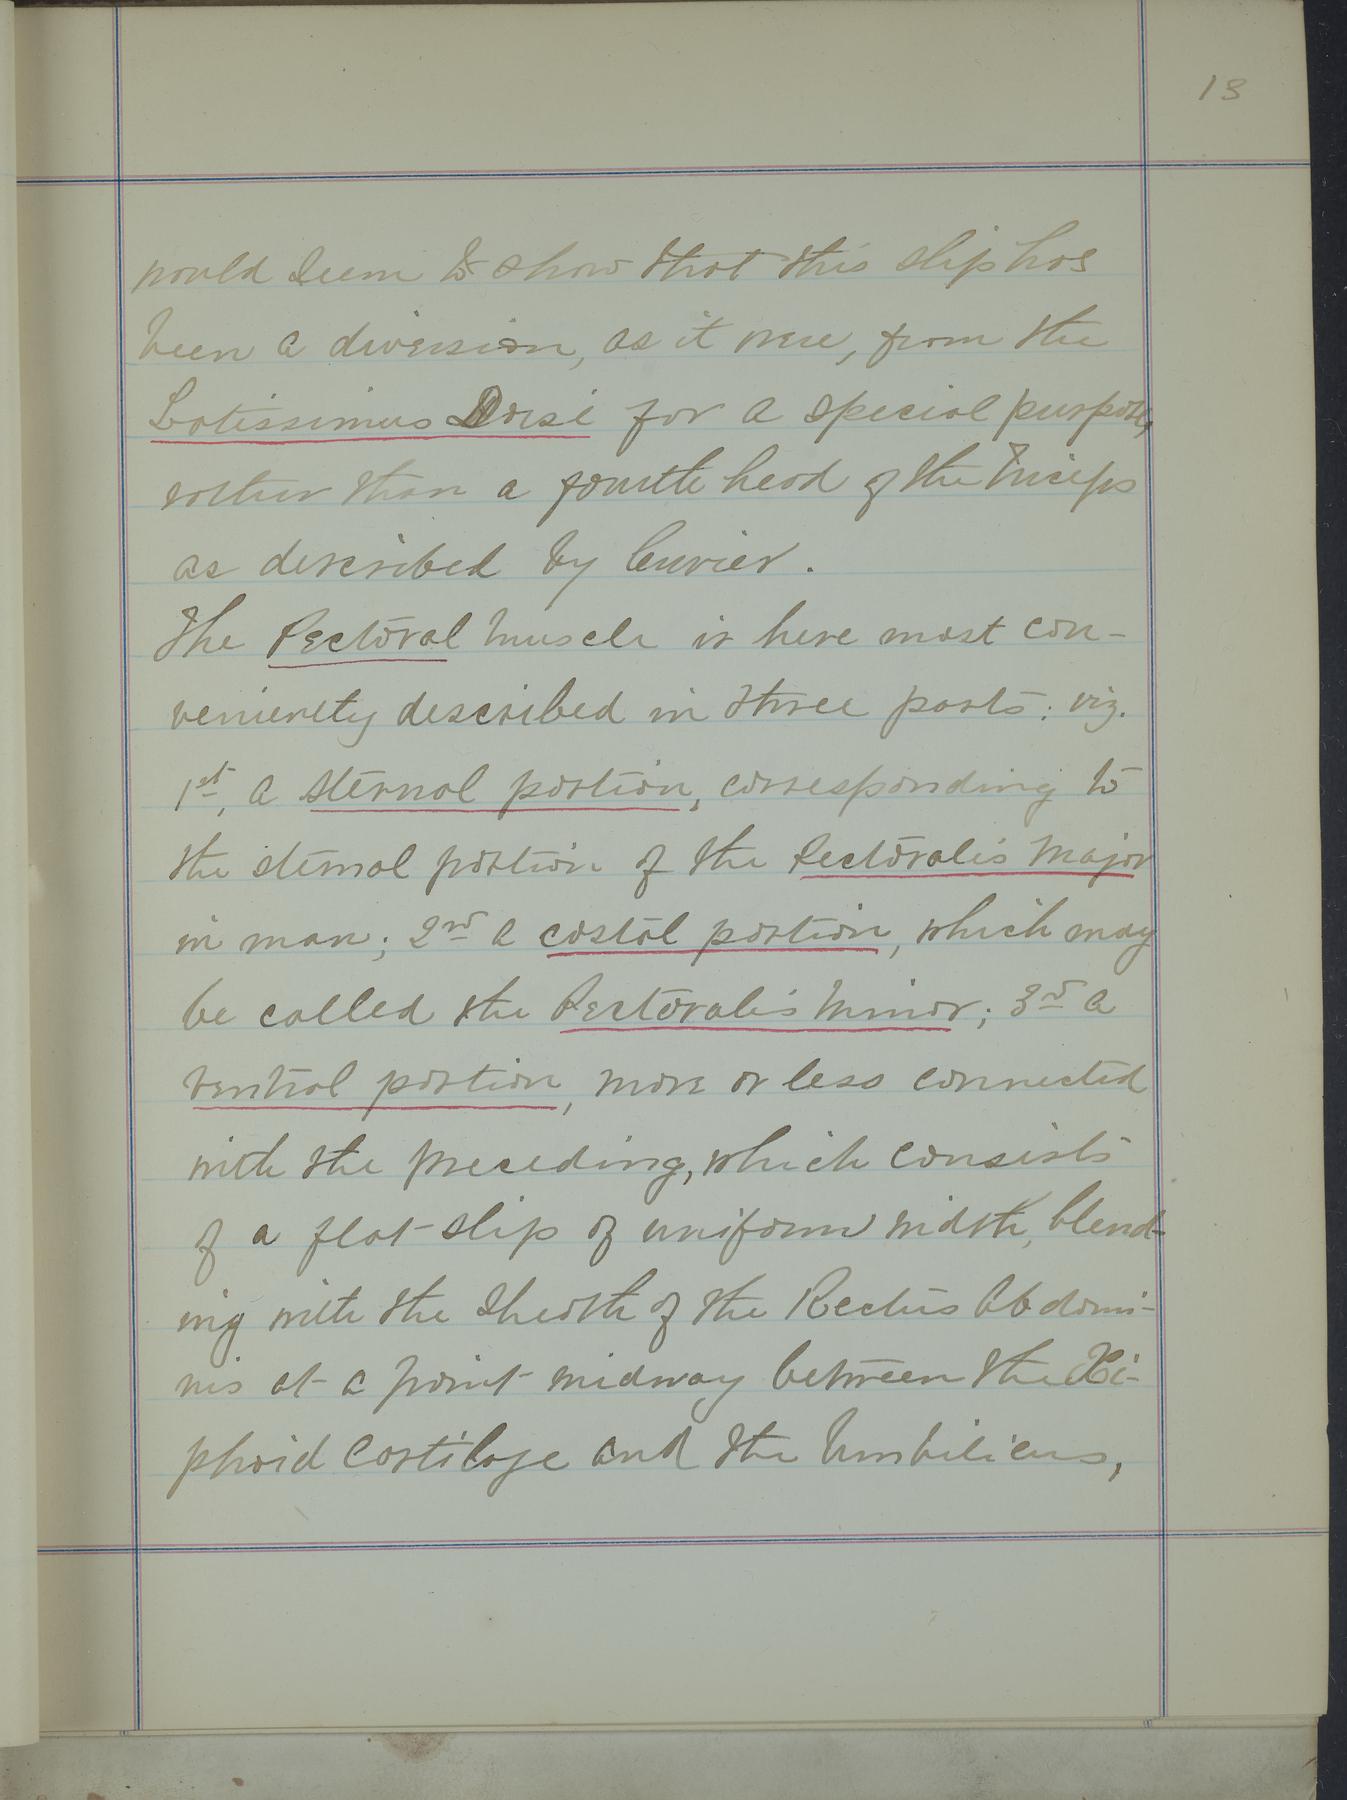 13
would seem to show that this slip has
been a division, as it were, from the
Latissimus Dorsi for a special purpose,
rather than a fourth head of the Triceps
as described by Cuvier.
The Pectoral Muscle is here most con-
veniently described in three parts: viz.
1st, a sternal portion, corresponding to
the sternal portion of the Pectoralis Major
in man; 2nd a costal portion, which may
be called the Pectoralis Minor; 3rd a
ventral portion, more or less connected
with the preceding, which consists
of a flat slip of uniform width, blend-
ing with the sheath of the Rectus Abdomi-
nis at a point midway between the Xi-
phoid Cartilage and the Umbilicus,